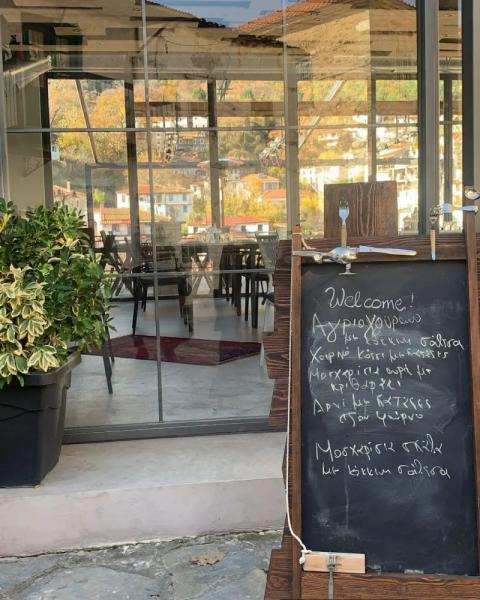 Welcome!
Αγριογούρουνο
με κόκκινη σάλτσα
Χοιρινό κότσι με πατάτες
Μοσχαρίσια ουρά με
κριθαράκι
Αρνί με πατάτες
στον φούρνο
Μοσχαρίσια
με κόκκινη σάλτσα